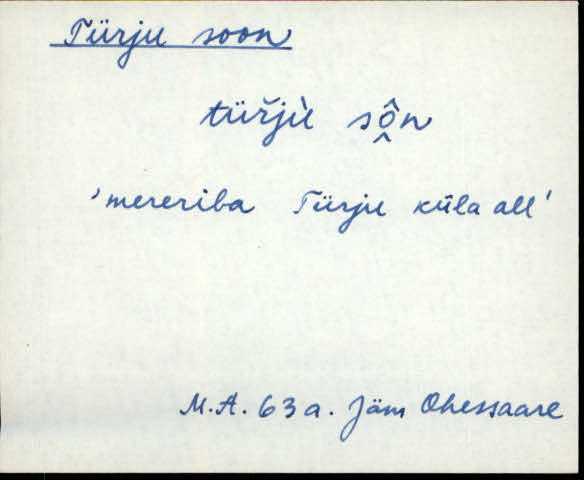 Türju soon
türjù sô̭n
'mereriba Türju küla all'
M.A. 63 a. Jäm Ohessaare